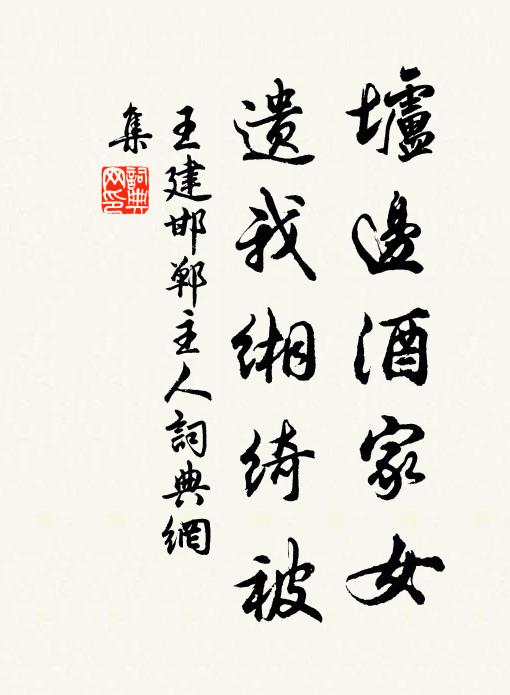 壚邊酒家女
遺我緗綺被
王建邯鄲主人詞典網
集
詞典
网印